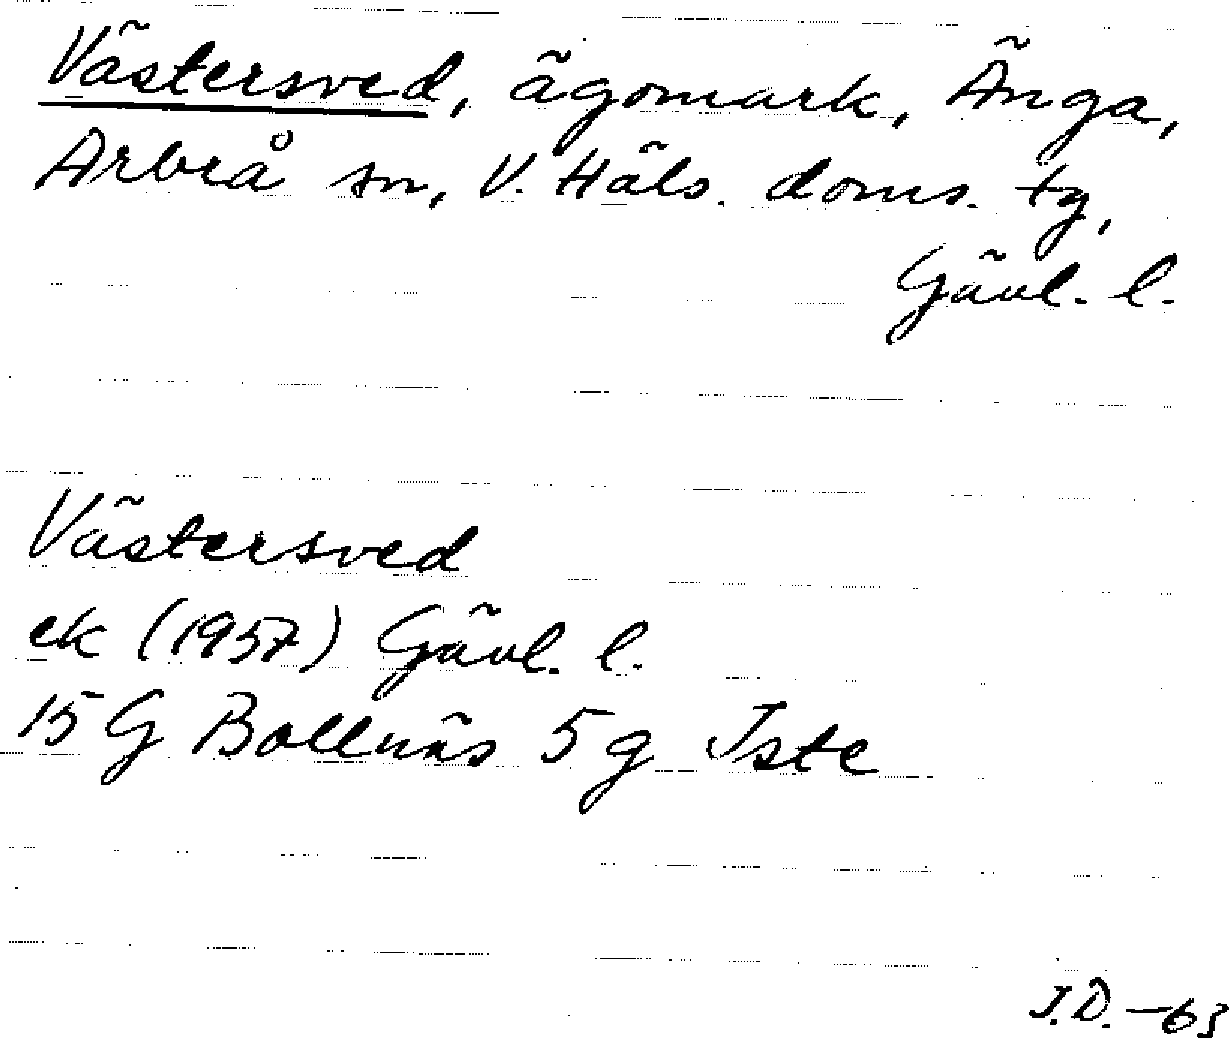 Västersved, ägomark, Änga,
Arbrå sn, V. Häls. doms. tg,
Gävl. l.
Västersved
ek (1957) Gävl. l.
15 G Bollnäs 5 g Iste
I.D. -63